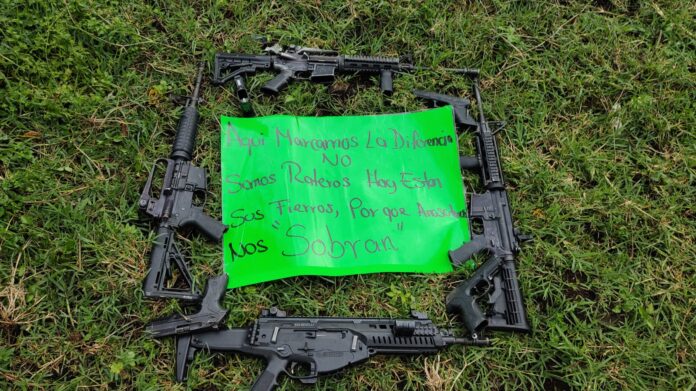 Aqui Marcamos La Diferencia
NO
Somos Rateros Hay Estan
Sus Fierros, Por que A nosotros
Nos "Sobran"